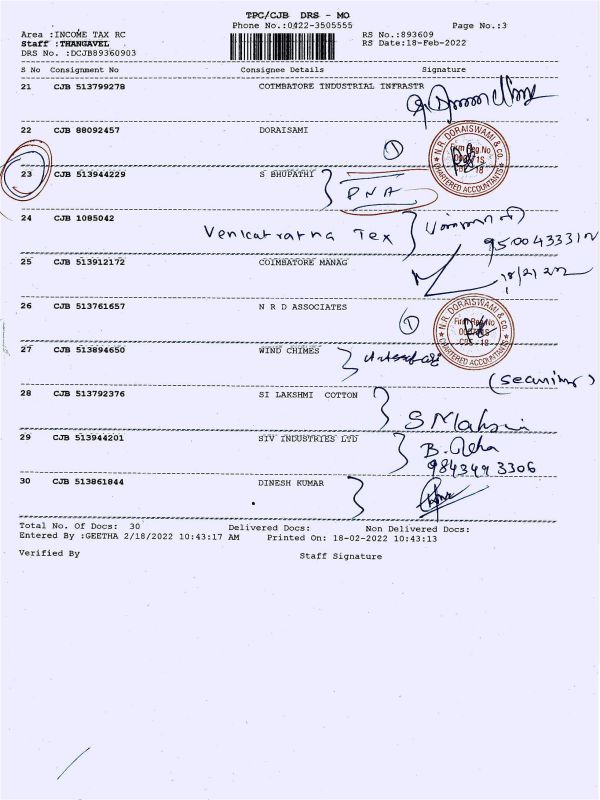 TPC/CJB DRS - MO
Phone No.:0422-3505555 Page No.:3
Area :INCOME TAX RC RS No.:893609
Staff :THANGAVEL RS Date:18-Feb-2022
DRS No. :DCJB89360903
S No Consignment No Consignee Details Signature
21 CJB 513799278 COIMBATORE INDUSTRIAL INFRASTR
22 CJB 88092457 DORAISAMI
1
N.R. DORAISWAMI & CO.
Firm Reg.No
CBE - 18
CHARTERED ACCOUNTANTS
23 CJB 513944229 S BHUPATHI
DNA
24 CJB 1085042
Venkatratna Tex
9500433312
25 CJB 513912172 COIMBATORE MANAG
18/2/22
26 CJB 513761657 N R D ASSOCIATES
1
N.R. DORAISWAMI & CO.
Firm Reg.No
CBE - 18
CHARTERED ACCOUNTANTS
27 CJB 513894650 WIND CHIMES
(Security)
28 CJB 513792376 SI LAKSHMI COTTON
29 CJB 513944201 SIV INDUSTRIES LTD
9843493306
30 CJB 513861844 DINESH KUMAR
Total No. Of Docs: 30 Delivered Docs: Non Delivered Docs:
Entered By :GEETHA 2/18/2022 10:43:17 AM Printed On: 18-02-2022 10:43:13
Verified By Staff Signature